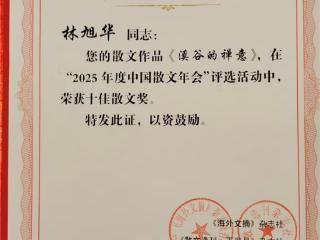 林旭华 同志：
您的散文作品《溪谷的禅意》，在
“2025年度中国散文年会”评选活动中，
荣获十佳散文奖。
特发此证，以资鼓励。
《海外文摘》杂志社